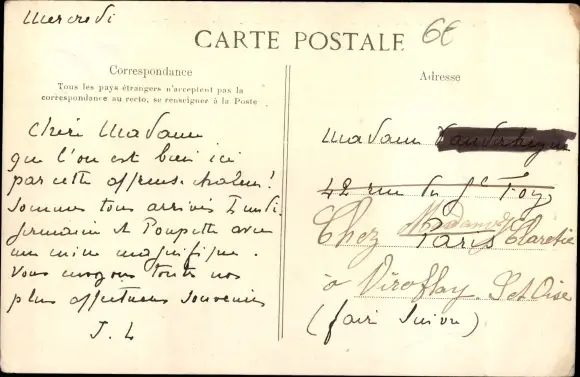 Mercredi
CARTE POSTALE
6€
Correspondance
Tous les pays étrangers n'acceptent pas la
correspondance au recto, se renseigner à la Poste
Chère Madame
que l'on est bien ici
par cette affreuse chaleur!
Sommes tous arrivés Lundi.
Germaine et Poupette avec
une mine magnifique.
Vous envoyons toutes nos
plus affectueux souvenirs
J. L
Adresse
Madame
42 rue du
Chez Madame Claretie
Paris
à Viroflay. S et Oise
(faire suivre)